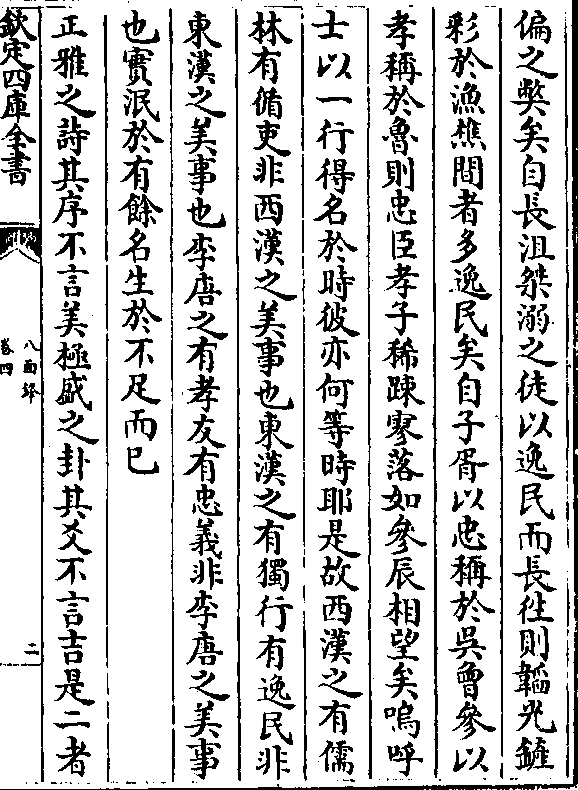 偏之弊矣自長沮桀溺之徒以逸民而長徃則韜光鏟
彩於漁樵間者多逸民矣自子胥以忠稱於吳曾參以
孝稱於魯則忠臣孝子稀踈寥落如參辰相望矣嗚呼
士以一行得名於時彼亦何等時耶是故西漢之有儒
林有循吏非西漢之美事也東漢之有獨行有逸民非
東漢之美事也李唐之有孝友有忠義非李唐之美事
也實泯於有餘名生於不足而已
正雅之詩其序不言美極盛之卦其爻不言吉是二者
欽定四庫全書
八面鋒
卷四
二